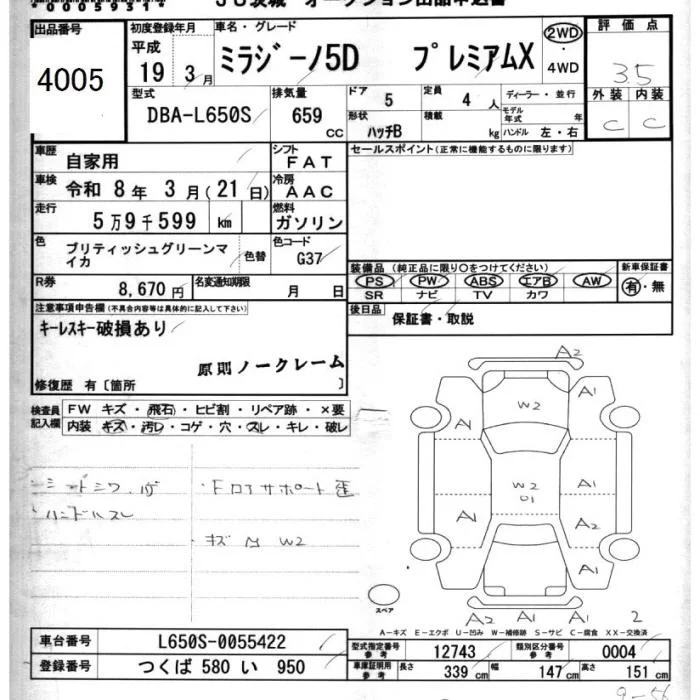 *0005931*
JU茨城 オークション出品申込書
出品番号
4005
初度登録年月
平成
19年 3月
車名・グレード
ミラジーノ5D プレミアムX
2WD
・
4WD
評価点
3.5
外装 内装
C C
型式
DBA-L650S
排気量
659
CC
ドア
5
定員
4 人
ディーラー・並行
モデル
年式 年
形状
ハッチB
積載
kg
ハンドル 左・右
車歴
自家用
シフト
FAT
車検
令和 8年 3月(21日)
冷房
AAC
走行
5万9千599 km
燃料
ガソリン
色
ブリティッシュグリーンマイカ
色替
色コード
G37
R券
8,670円
名変通知期限
月 日
セールスポイント(正常に機能するものに限ります)
装備品(純正品に限り○をつけてください)
PS PW ABS エアB AW
SR ナビ TV カワ
新車保証書
有・無
後日品
保証書・取説
注意事項申告欄(不具合内容等は具体的に記入して下さい)
キーレスキー破損あり
原則ノークレーム
修復歴 有〔箇所 〕
検査員
記入欄
FW キズ・飛石・ヒビ割・リペア跡・×要
内装 キズ・汚レ・コゲ・穴・スレ・キレ・破レ
シートシワ
ハンドルスレ
・Fロアサポート歪
キズ W2
A2
A1
W2
A
A1
W2
01
A1
A1
A2
A1
A2 A1 A1 2
スペア
A-キズ E-エクボ U-凹み W-補修跡 S-サビ C-腐食 XX-交換済
車台番号
L650S-0055422
登録番号
つくば 580 い 950
型式指定番号
参考
12743
類別区分番号
参考
0004
車庫証明用
参考
長さ 339 cm 幅 147 cm 高さ 151 cm